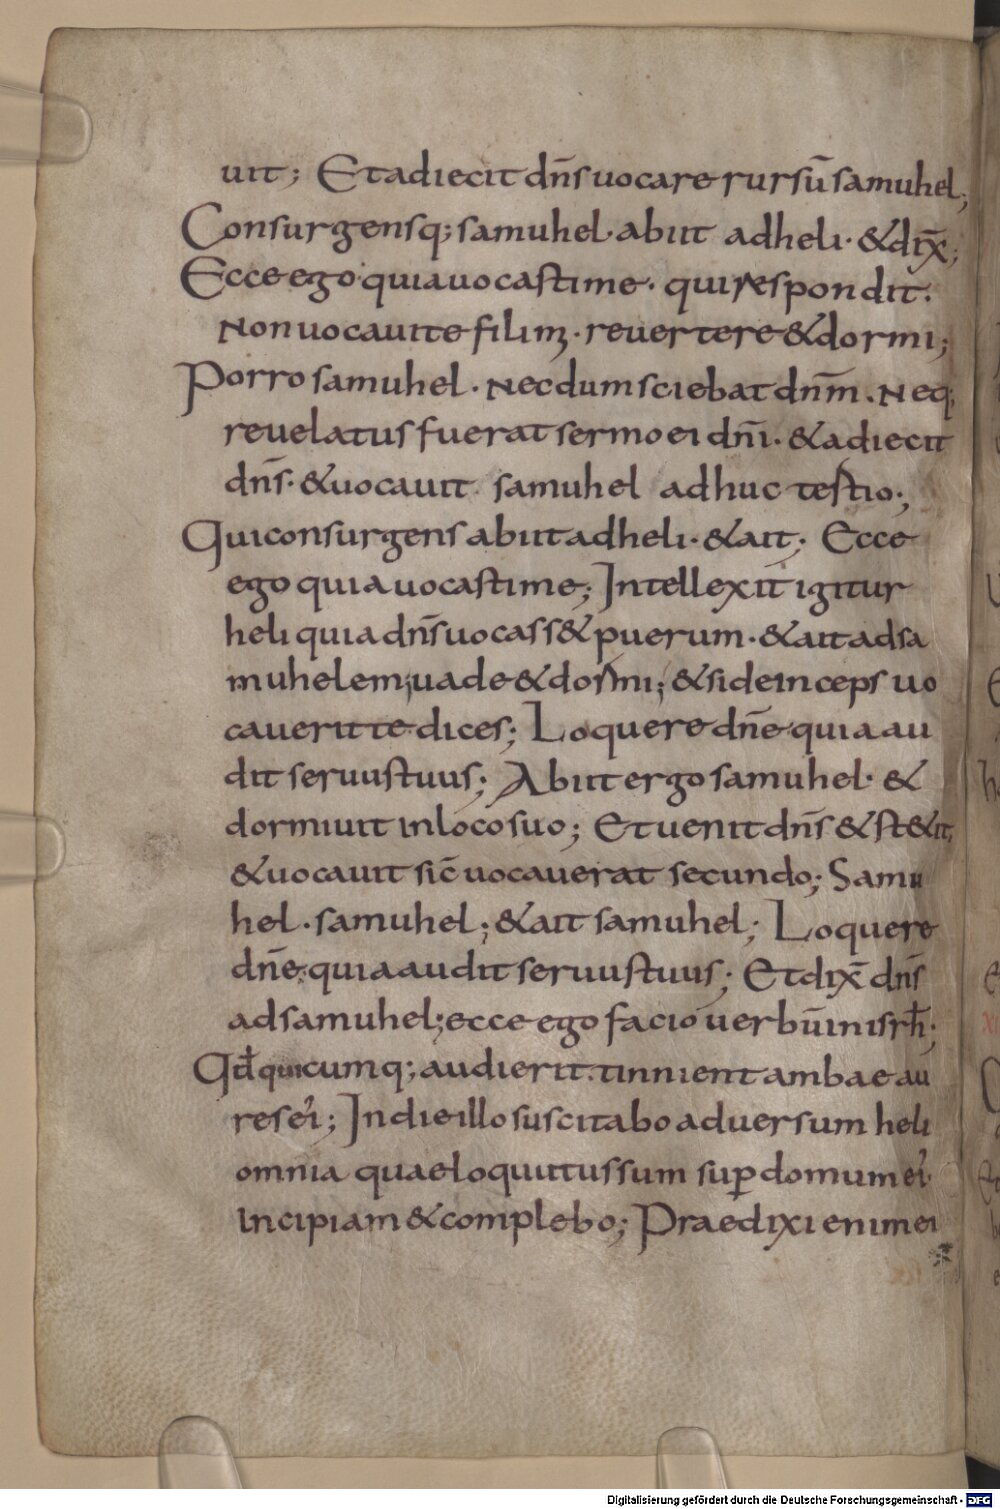 uit; Et adiecit dn̄s uocare rursū samuhel;
Consurgensq; samuhel · abiit ad heli · & dix̄;
Ecce ego quia uocasti me · qui respondit ·
Non uocaui te fili mi · reuertere & dormi;
Porro samuhel · Necdum sciebat dn̄m · Neq;
reuelatus fuerat sermo ei dn̄i · & adiecit
dn̄s · & uocauit samuhel adhuc tertio;
Qui consurgens abiit ad heli · & ait; Ecce
ego quia uocasti me; Intellexit igitur
heli quia dn̄s uocass& puerum · & ait ad sa
muhelem; uade & dormi; & si deinceps uo
cauerit te dices; Loquere dn̄e quia au
dit seruus tuus; Abiit ergo samuhel · &
dormiuit in loco suo; Et uenit dn̄s & st&it,
& uocauit sic̄ uocauerat secundo; Samu
hel · samuhel; & ait samuhel; Loquere
dn̄e; quia audit seruus tuus; Et dix̄ dn̄s
ad samuhel; ecce ego facio uerbū in isrh̄;
Qd̄ quicumq; audierit · tinnient ambae au
res ei'; In die illo suscitabo aduersum heli
omnia quae loquutus sum sup̱ domum ei'·
Incipiam & complebo; Praedixi enim ei
Digitalisierung gefördert durch die Deutsche Forschungsgemeinschaft - DFG